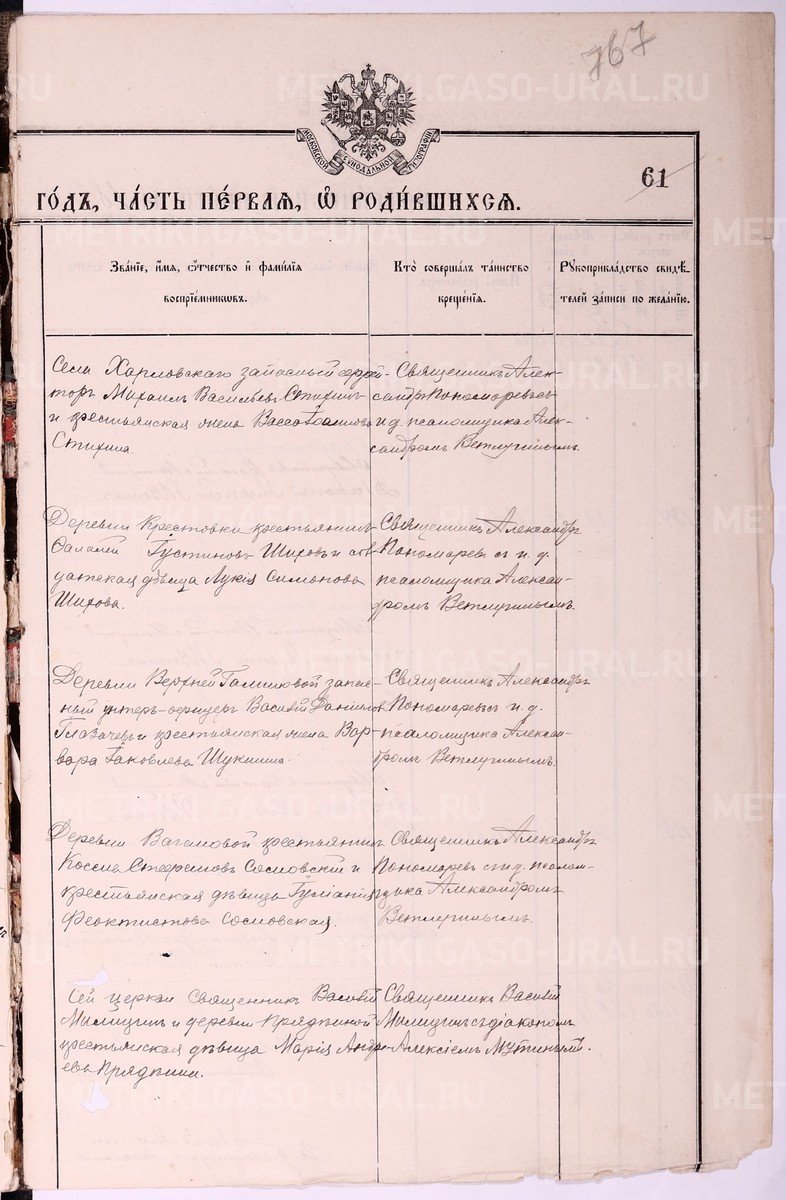 767
МОСКОВСКОЙ СѴНОДАЛЬНОЙ ТИПОГРАФІИ
61
го́дъ, ча́сть пе́рваѧ, ѡ҆ роди́вшихсѧ.
Зва́нїе, и҆́мѧ, ѻ҆́тчество и҆ фами́лїѧ
воспрїе́мниковъ.
Кто̀ соверша́лъ та́инство
креще́нїѧ.
Рꙋкоприкла́дство свидѣ́-
телей за́писи по жела́нїю.
Села Харловскаго запасный
торъ Михаилъ Васильевъ Стихинъ
и крестьянская жена Васса Іоаннова
Стихина
Священникъ Алек-
сандръ Пономаревъ съ
и.д. псаломщика Алек-
сандромъ Ветлугинымъ.
Деревни Крестовки крестьянинъ
Фалалей Іустиновъ Шиховъ и сол-
датская дѣвица Лукія Симонова
Шихова.
Священникъ Александръ
Пономаревъ съ и.д.
псаломщика Алексан-
дромъ Ветлугинымъ.
Деревни Верхней запас-
ный унтеръ-офицеръ Василій Данилов
и крестьянская жена Вар-
вара Іаковлева Щукина.
Священникъ Александръ
Пономаревъ съ и.д.
псаломщика Алексан-
дромъ Ветлугинымъ.
Деревни Вагановой крестьянинъ
Стефановъ Сосновскій и
крестьянская дѣвица Іуліанія
Феоктистова Сосновская.
Священникъ Александръ
Пономаревъ съ и.д. псалом-
щика Александромъ
Ветлугинымъ.
Сей церкви Священникъ Василій
Милицинъ и деревни Пряхиной
крестьянская дѣвица Марія Андре-
ева Пряхина.
Священникъ Василій
Милицинъ съ діакономъ
Алексіемъ Мутинымъ.
METRIKI.GASO-URAL.RU